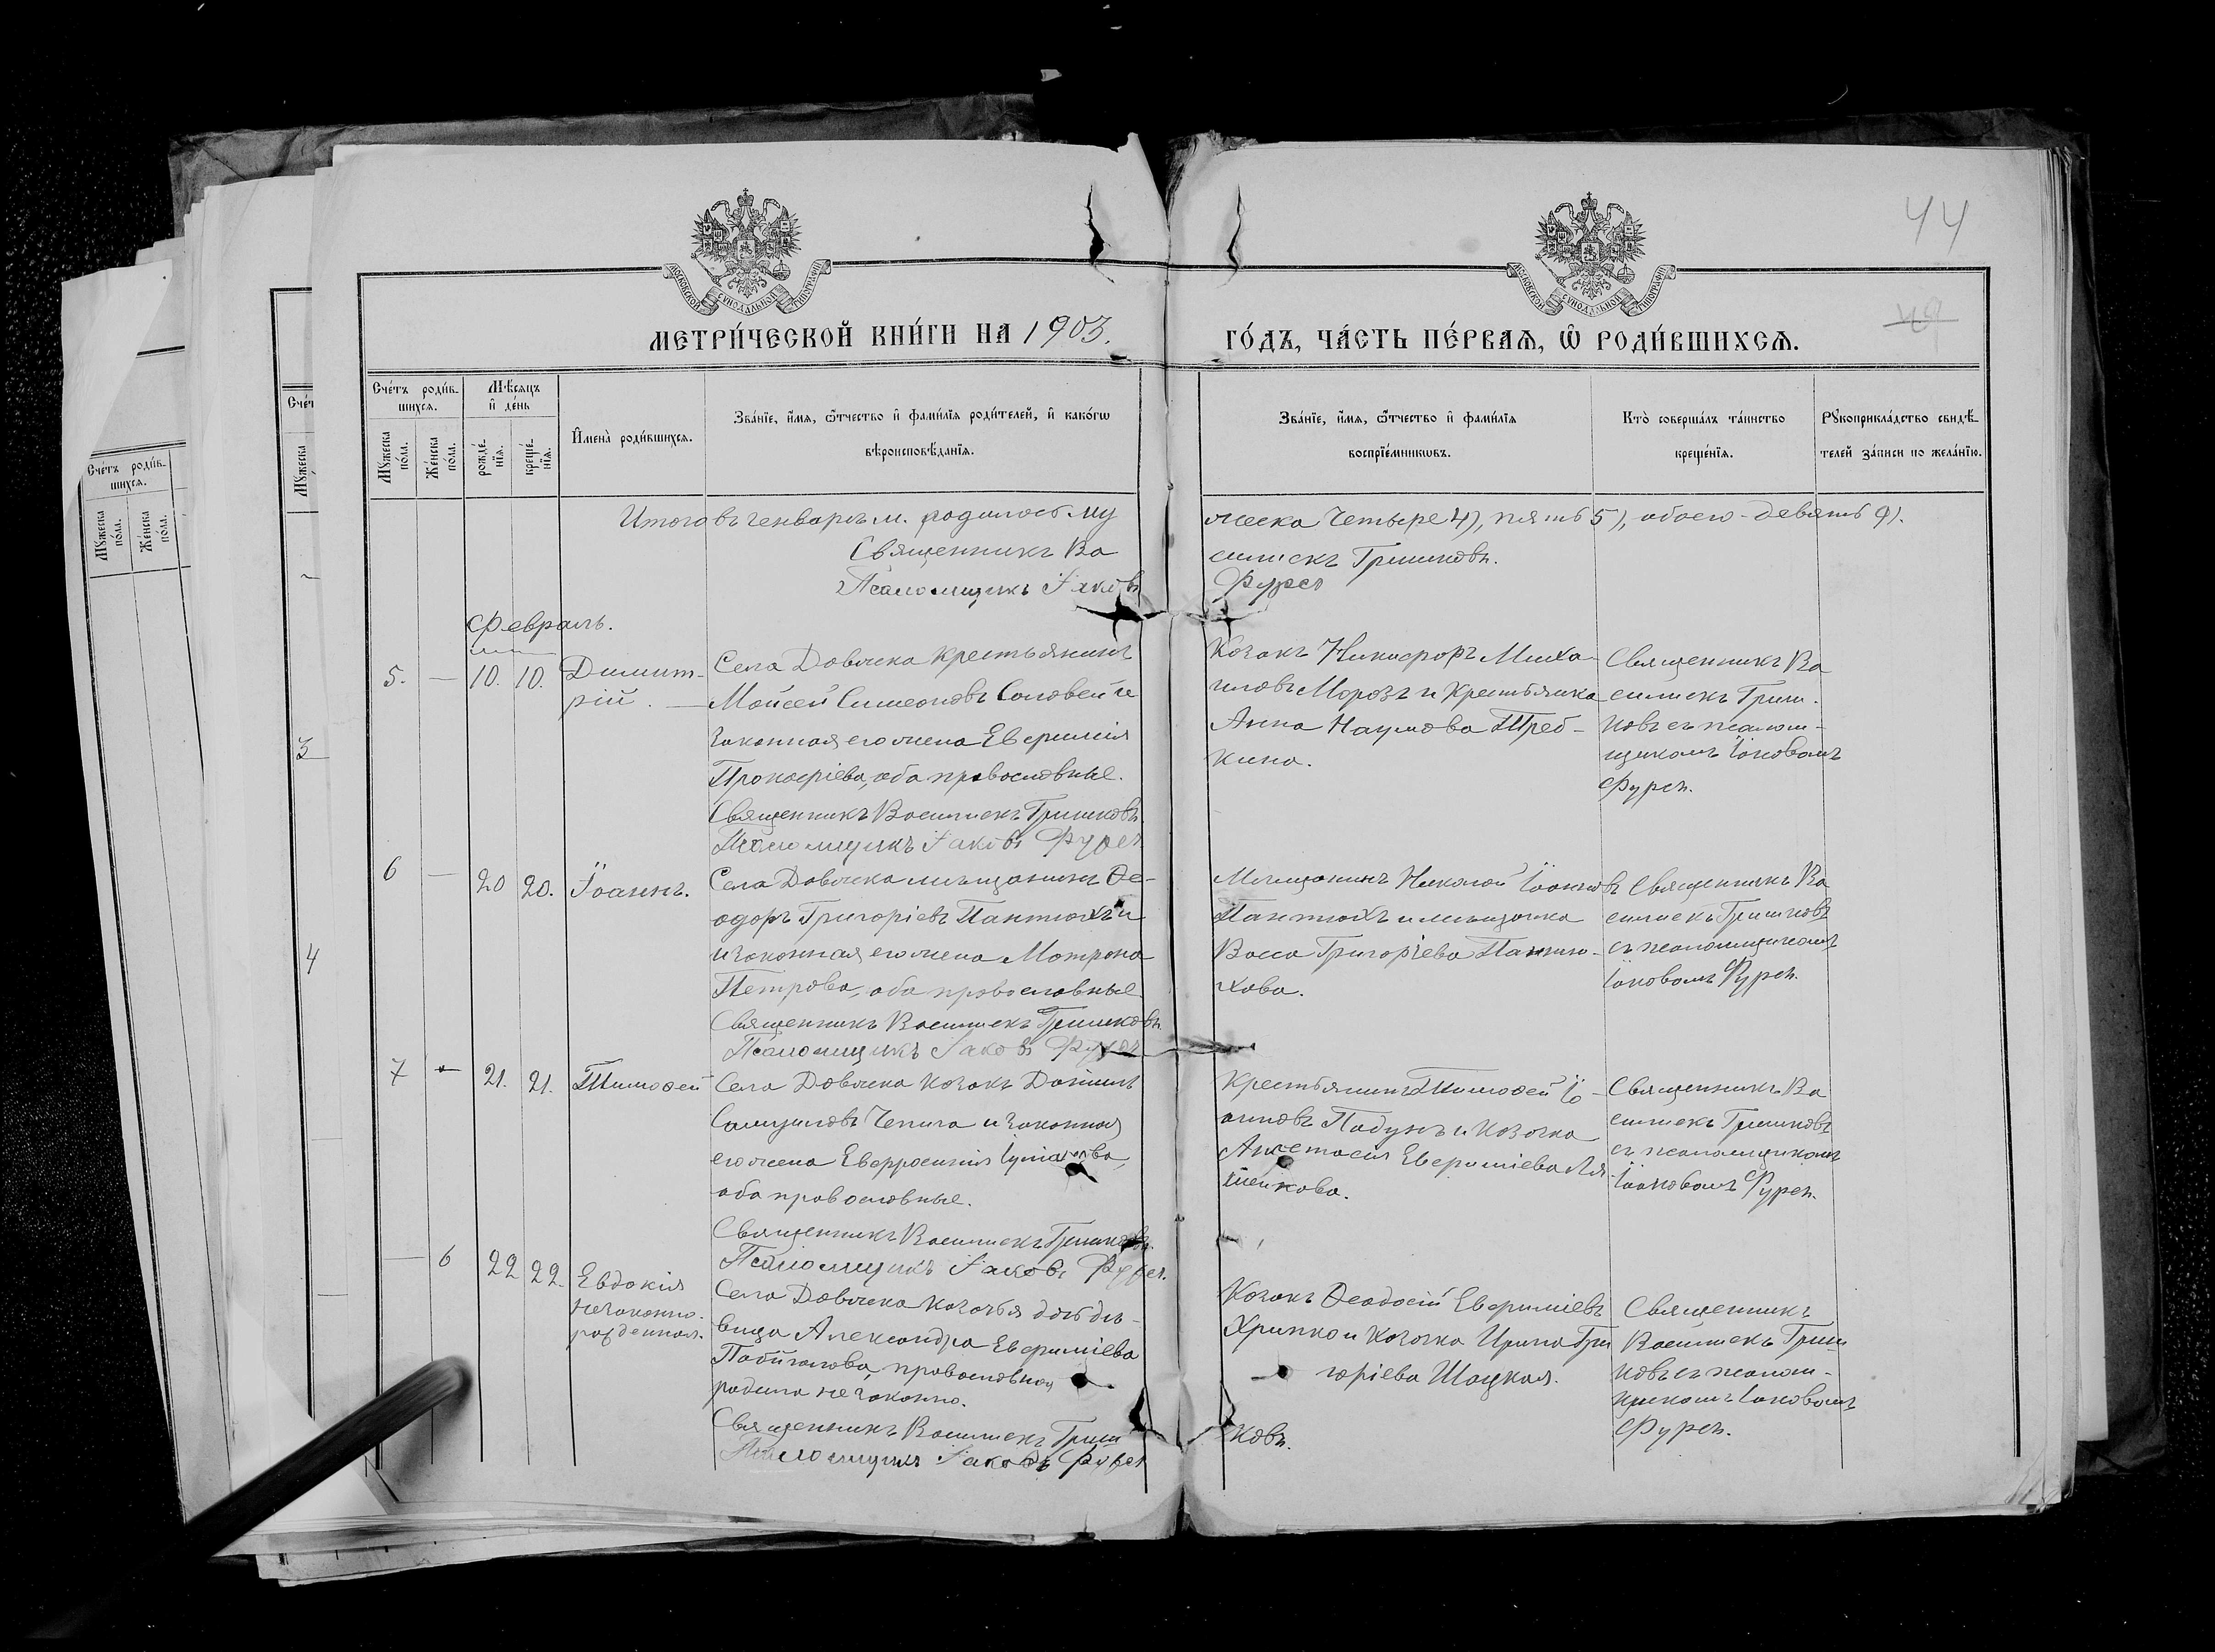 44
49
МОСКОВСКОЙ СѴНОДАЛЬНОЙ ТИПОГРАФІИ
МОСКОВСКОЙ СѴНОДАЛЬНОЙ ТИПОГРАФІИ
МЕТРИ́ЧЕСКОЙ КНИ́ГИ НА 1903. ГО́ДЪ, ЧА́СТЬ ПЕ́РВАѦ, Ѡ҆ РОДИ́ВШИХСѦ.
Сче́тъ роди́в-
шихсѧ.
Мꙋ́жеска по́ла.
Же́нска по́ла.
Мѣ́сѧцъ
и҆ де́нь
рожде́-
нїѧ.
креще́-
нїѧ.
И҆мена̀ роди́вшихсѧ.
Зва́нїе, и҆́мѧ, ѻ҆́тчество и҆ фами́лїѧ роди́телей, и҆ како́гѡ
вѣроисповѣ́данїѧ.
Зва́нїе, и҆́мѧ, ѻ҆́тчество и҆ фами́лїѧ
воспрїе́мникѡвъ.
Кто̀ соверша́лъ та́инство
креще́нїѧ.
Рꙋкоприкла́дство свидѣ́-
телей за́писи по жела́нїю.
Итого въ генварѣ м. родилось му
жеска четыре 4), пять 5), обоего - девять 9).
Священникъ Ва
силискъ Гришковъ.
Псаломщикъ Іаковъ
Фурса
Февраль.
5. — 10. 10. Димит-
рій.
Села Довжека крестьянинъ
Мойсей Симеоновъ Соловей и
законная его жена Евфимія
Прокофіева, оба православные.
Священникъ Василискъ Гришковъ.
Псаломщикъ Іаковъ Фурса
Козакъ Никифоръ Миха-
иловъ Морозъ и крестьянка
Анна Наумова Треб-
кина.
Священникъ Ва
силискъ Гриш-
ковъ съ псалом-
щикомъ Іаковомъ
Фурсой.
6 — 20 20. Іоаннъ.
Села Довжека мѣщанинъ Ѳе-
одоръ Григоріевъ Пантюхъ и
и законная его жена Матрона
Петрова, оба православные.
Священникъ Василискъ Гришковъ.
Псаломщикъ Іаковъ Фурса
Мѣщанинъ Николай Іоанновъ
Пантюхъ и мѣщанка
Васса Григоріева Пантю-
хова.
Священникъ Ва
силискъ Гришковъ
съ псаломщикомъ
Іаковомъ Фурсой.
7 — 21. 21. Тимоѳей
Села Довжека козакъ Даніилъ
Самуиловъ Чепига и законная
его жена Евфросинія
оба православные.
Священникъ Василискъ Гришковъ.
Псаломщикъ Іаковъ Фурса.
Крестьянинъ Тимоѳей Іо-
анновъ Падунъ и козачка
Анастасія Евфиміева Ля-
шенкова.
Священникъ Ва
силискъ Гришковъ
съ псаломщикомъ
Іаковомъ Фурсой.
— 6 22 22. Евдокія
незаконно-
рожденная.
Села Довжека козачья дочь дѣ-
вица Александра Евфиміева
православная
родила незаконно.
Священникъ Василискъ Гриш
ковъ.
Псаломщикъ Іаковъ Фурса
Козакъ Ѳеодосій Евфиміевъ
Хрипко и козачка Ирина Гри
горіева Шацкая.
Священникъ
Василискъ Гриш
ковъ съ псалом-
щикомъ Іаковомъ
Фурсой.
3
4